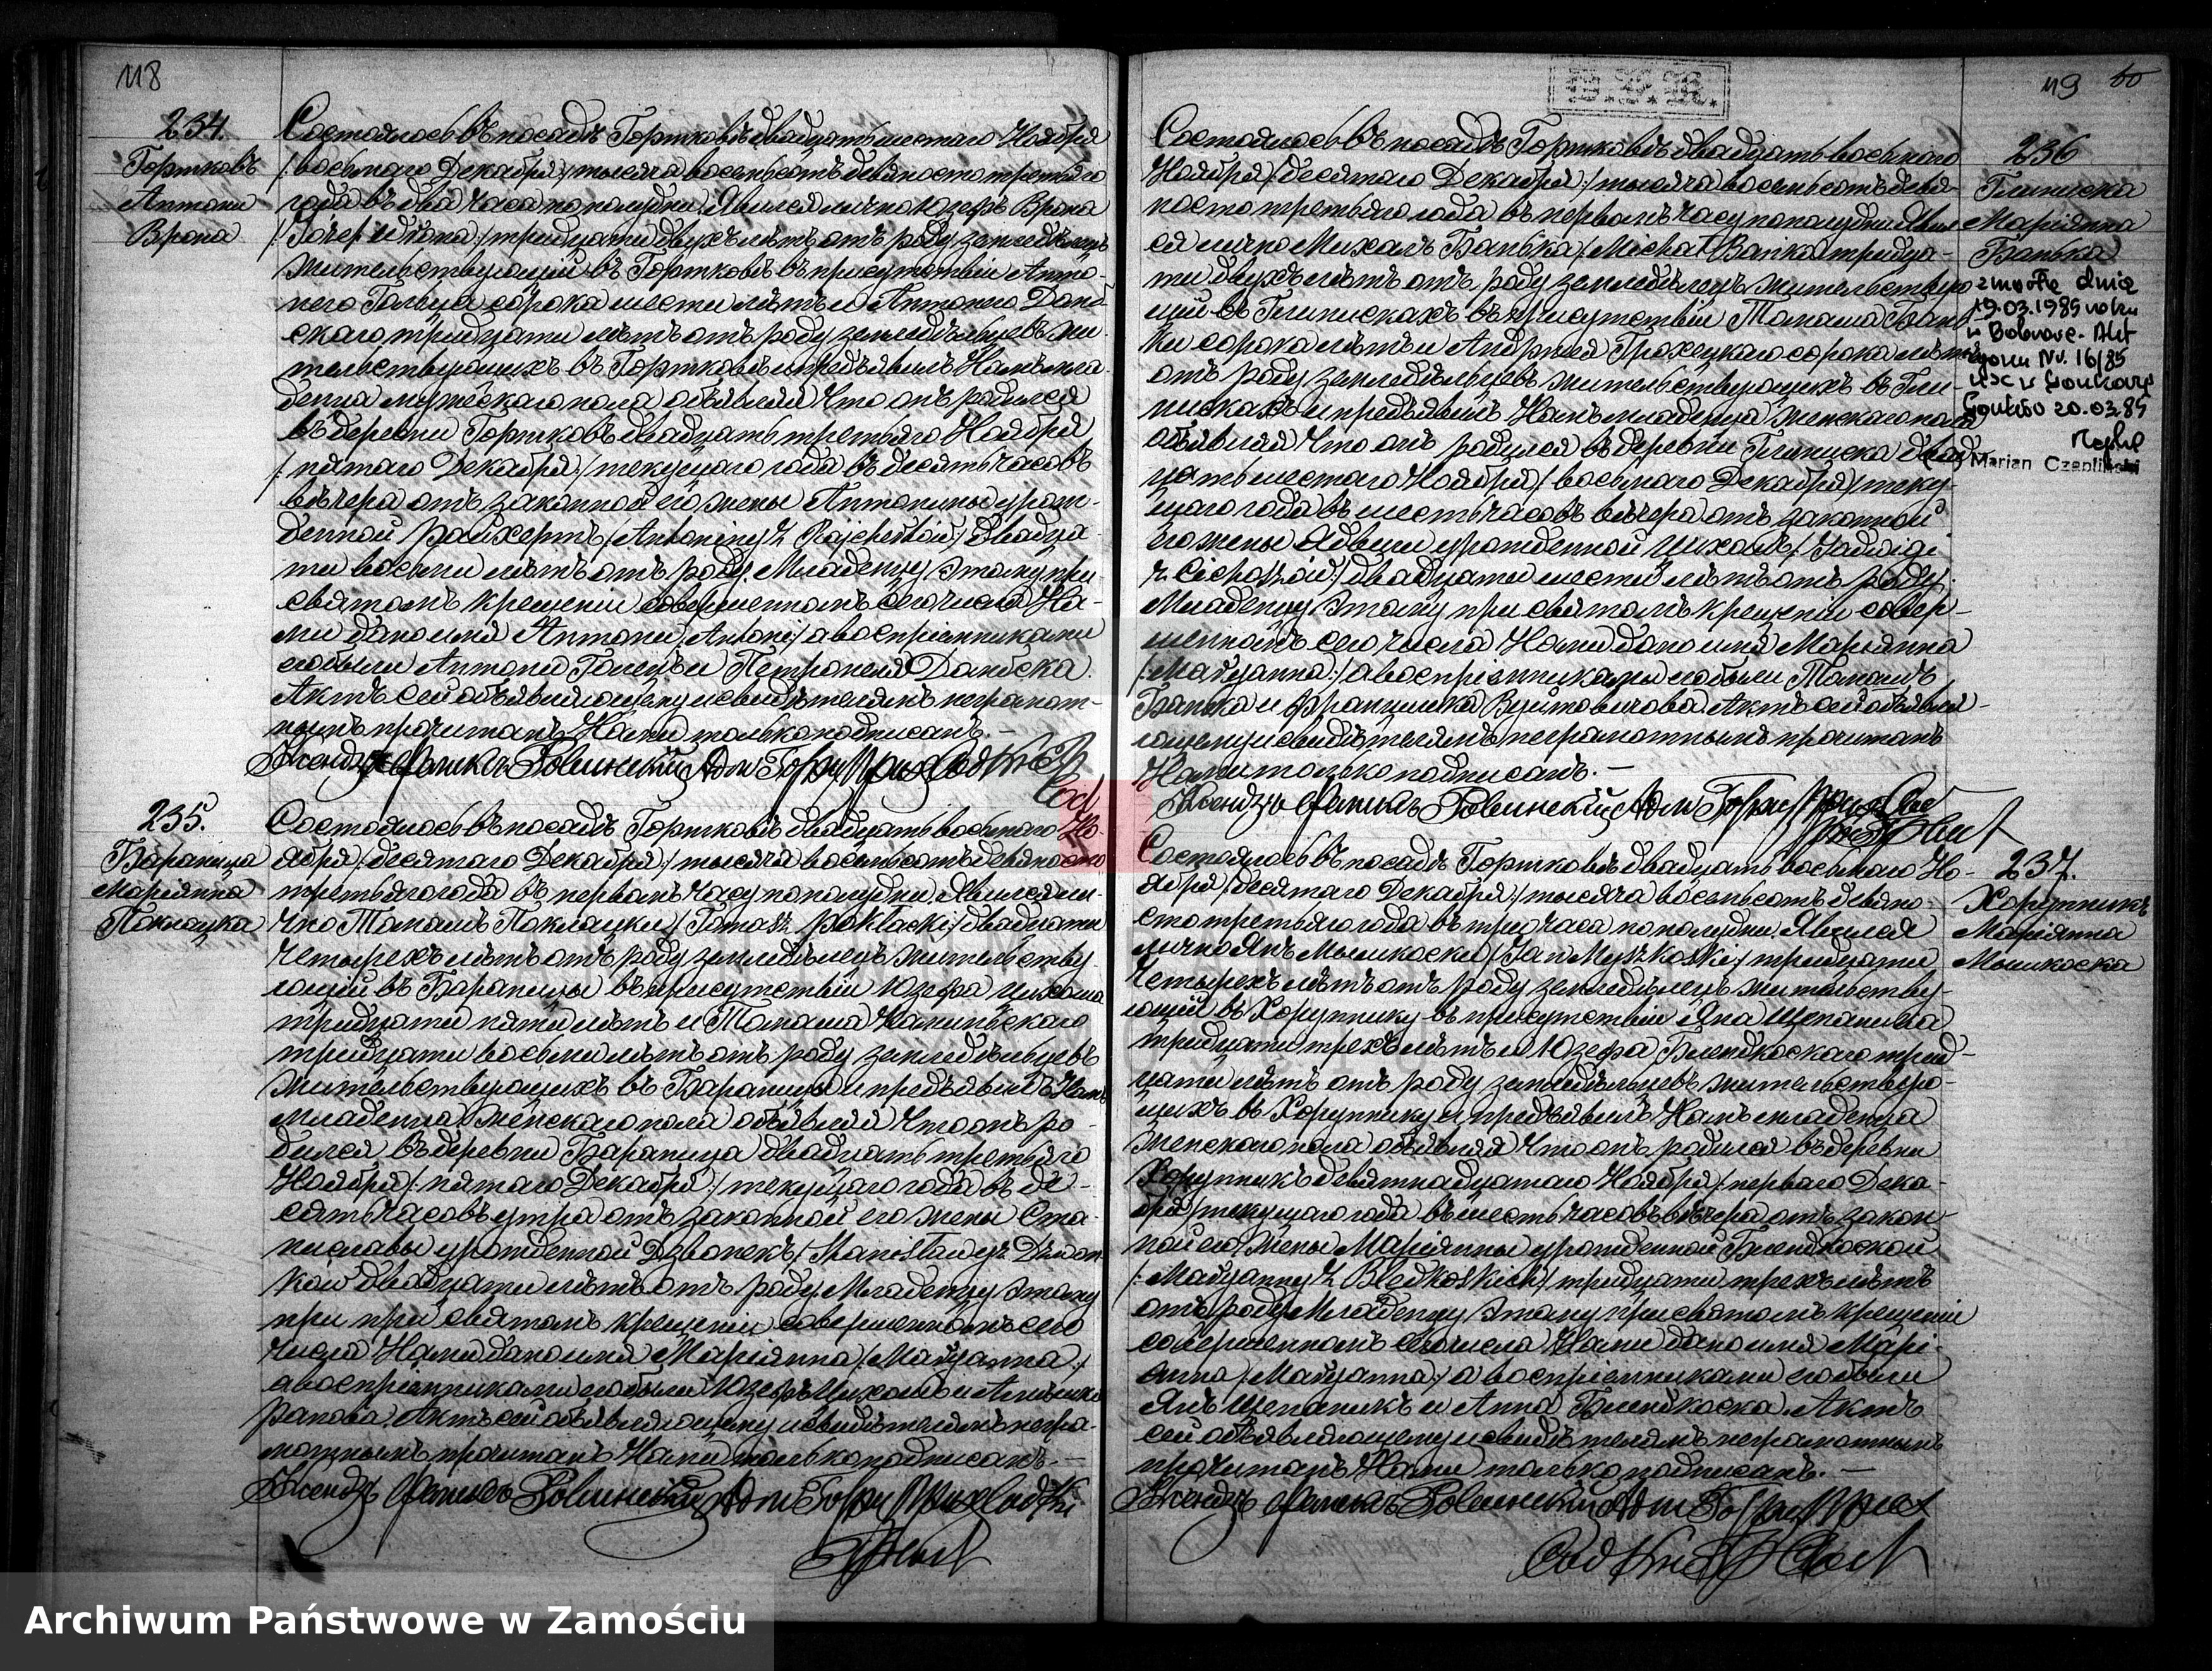 118
234.
Горшковъ
Антони
Врона
Состоялось въ посадѣ Горшковѣ двадцать шестаго Ноября
/:восьмаго Декабря:/ тысяча восемьсотъ девяносто третьяго
года въ два часа по полудни. Явился лично Юзефъ Врона
/:Józef Wrona:/ тридцати двухъ лѣтъ отъ роду земледѣлецъ
жительствующій въ Горшковѣ въ присутствіи Анто-
него Гольца сорока шести лѣтъ и Антонего Домб-
скаго тридцати лѣтъ отъ роду земледѣльцевъ жи-
тельствующихъ въ Горшковѣ и предъявилъ Намъ мла-
денца мужескаго пола объявляя что онъ родился
въ деревни Горшковъ двадцать третьяго Ноября
/:пятаго Декабря:/ текущаго года въ десять часовъ
вечера отъ законной его жены Антонины урож-
денной Райхертъ /:Antoniny z Rajchertów:/ двадца-
ти восьми лѣтъ отъ роду. Младенцу этому при
святомъ крещеніи совершенномъ сего числа На-
ми дано имя Антони /:Antoni:/ а воспріемниками
его были Антони Голецъ и Петронеля Домбска.
Актъ сей объявляющему и свидѣтелямъ неграмот-
нымъ прочитанъ Нами только подписанъ.—
235.
Бараница
Маріянна
Поклацка
Состоялось въ посадѣ Горшковѣ двадцать восьмаго Но-
ября /:десятаго Декабря:/ тысяча восемьсотъ девяносто
третьяго года въ первомъ часу по полудни. Явился ли-
чно Томашъ Поклацки /:Tomasz Pokłacki:/ двадцати
четырехъ лѣтъ отъ роду земледѣлецъ жительству-
ющій въ Бараницы въ присутствіи Юзефа Цихоша
тридцати пяти лѣтъ и Томаша
тридцати восьми лѣтъ отъ роду земледѣльцевъ
жительствующихъ въ Бараницы и предъявилъ Намъ
младенца женскаго пола объявляя что онъ ро-
дился въ деревни Бараница двадцать третьяго
Ноября /:пятаго Декабря:/ текущаго года въ де-
сять часовъ утра отъ законной его жены Ста-
ниславы урожденной Дзвонекъ /:Stanisławy z Dzwon-
ków двадцати лѣтъ отъ роду. Младенцу этому
при при святомъ крещеніи совершенномъ сего
числа Нами дано имя Маріянна /:Maryanna:/
а воспріемниками его были Юзефъ Цихошъ и
Актъ сей объявляющему и свидѣтелямъ негра-
мотнымъ прочитанъ Нами только подписанъ.—
119 60
236
Глиниска
Маріянна
Банька
zmarła dnia
19.03.1985 roku
w Bobrowe. Akt
zgonu Nr. 16/85
USC w Gorzkow
Gorzków 20.03.85
Marian Czapliński
Состоялось въ посадѣ Горшковѣ двадцать восьмаго
Ноября /:десятаго Декабря:/ тысяча восемьсотъ девя-
носто третьяго года въ первомъ часу по полудни. Явил-
ся лично Михалъ Банька /:Michał Bańka тридца-
ти двухъ лѣтъ отъ роду земледѣлецъ жительствую-
щій въ Глинискахъ въ присутствіи Томаша Бань-
ки сорока лѣтъ и Андржея Грохецкаго сорока лѣтъ
отъ роду земледѣльцевъ жительствующихъ въ Гли-
нискахъ и предъявилъ Намъ младенца женскаго пола
объявляя что онъ родился въ деревни Глиниска двад-
цать шестаго Ноября /:восьмаго Декабря:/ теку-
щаго года въ шесть часовъ вечера отъ законной
его жены Ядвиги урожденной Цихошъ /:Jadwigi
z Cichoszów:/ двадцати шести лѣтъ отъ роду.
Младенцу этому при святомъ крещеніи совер-
шенномъ сего числа Нами дано имя Маріянна
/:Maryanna:/ а воспріемниками его были Томашъ
Банька и Францишка Вуйтовичова. Актъ сей объявля-
ющему и свидѣтелямъ неграмотнымъ прочитанъ
Нами только подписанъ.—
237.
Хорупникъ
Маріянна
Мышкоска
Состоялось въ посадѣ Горшковѣ двадцать восьмаго Но-
ября /:десятаго Декабря:/ тысяча восемьсотъ девяно-
сто третьяго года въ три часа по полудни. Явился
лично Янъ Мышкоски /:Jan Myszkoski:/ тридцати
четырехъ лѣтъ отъ роду земледѣлецъ жительству-
ющій въ Хорупнику въ присутствіи Яна Щепаника
тридцати трехъ лѣтъ и Юзефа Блендкоскаго трид-
цати лѣтъ отъ роду земледѣльцевъ жительствую-
щихъ въ Хорупнику и предъявилъ Намъ младенца
женскаго пола объявляя что онъ родился въ деревни
Хорупникъ девятнадцатаго Ноября /:перваго Дека-
бря:/ текущаго года въ шесть часовъ вечера отъ закон-
ной его жены Маріянны урожденной Блендкоской
/:Maryanny z Błędkoskich:/ тридцати трехъ лѣтъ
отъ роду. Младенцу этому при святомъ крещеніи
совершенномъ сего числа Нами дано имя Марі-
янна /:Maryanna:/ а воспріемниками его были
Янъ Щепаникъ и Анна Блендкоска. Актъ
сей объявляющему и свидѣтелямъ неграмотнымъ
прочитанъ Нами только подписанъ.—
Archiwum Państwowe w Zamościu